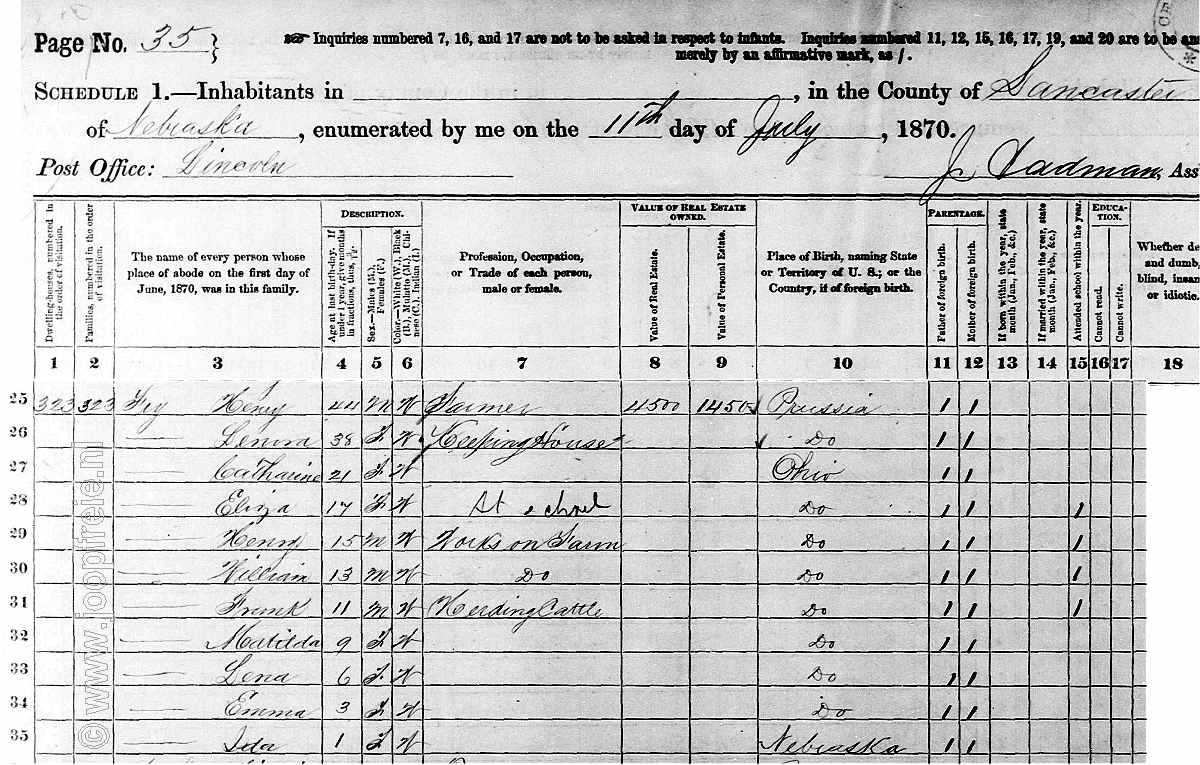 Page No. 35 }
☞ Inquiries numbered 7, 16, and 17 are not to be asked in respect to infants. Inquiries numbered 11, 12, 15, 16, 17, 19, and 20 are to be an
merely by an affirmative mark, as /.
SCHEDULE 1.—Inhabitants in , in the County of Lancaster
of Nebraska, enumerated by me on the 11th day of July, 1870.
Post Office: Lincoln
J Cadman, Ass
Dwelling-houses, numbered in the order of visitation.
Families, numbered in the order of visitation.
The name of every person whose place of abode on the first day of June, 1870, was in this family.
DESCRIPTION.
Age at last birth-day. If under 1 year, give months in fractions, thus, 3/12.
Sex.—Males (M.), Females (F.)
Color.—White (W.), Black (B.), Mulatto (M.), Chinese (C.), Indian (I.)
Profession, Occupation, or Trade of each person, male or female.
VALUE OF REAL ESTATE OWNED.
Value of Real Estate.
Value of Personal Estate.
Place of Birth, naming State or Territory of U. S.; or the Country, if of foreign birth.
PARENTAGE.
Father of foreign birth.
Mother of foreign birth.
If born within the year, state month (Jan., Feb., &c.)
If married within the year, state month (Jan., Feb., &c.)
Attended school within the year.
EDUCATION.
Cannot read.
Cannot write.
Whether de and dumb, blind, insan or idiotic.
1 2 3 4 5 6 7 8 9 10 11 12 13 14 15 16 17 18
25 323 323 Fry Henry 44 M W Farmer 4500 1450 Prussia / /
26 —— 38 F W Keeping House Do / /
27 —— Catharine 21 F W Ohio / /
28 —— Eliza 17 F W At school Do / / /
29 —— Henry 15 M W Works on Farm Do / / /
30 —— William 13 M W Do Do / / /
31 —— Frank 11 M W Herding Cattle Do / / /
32 —— Matilda 9 F W Do / /
33 —— Lena 6 F W Do / /
34 —— Emma 3 F W Do / /
35 —— Ida 1 F W Nebraska / /
© www.joopfreie.nl